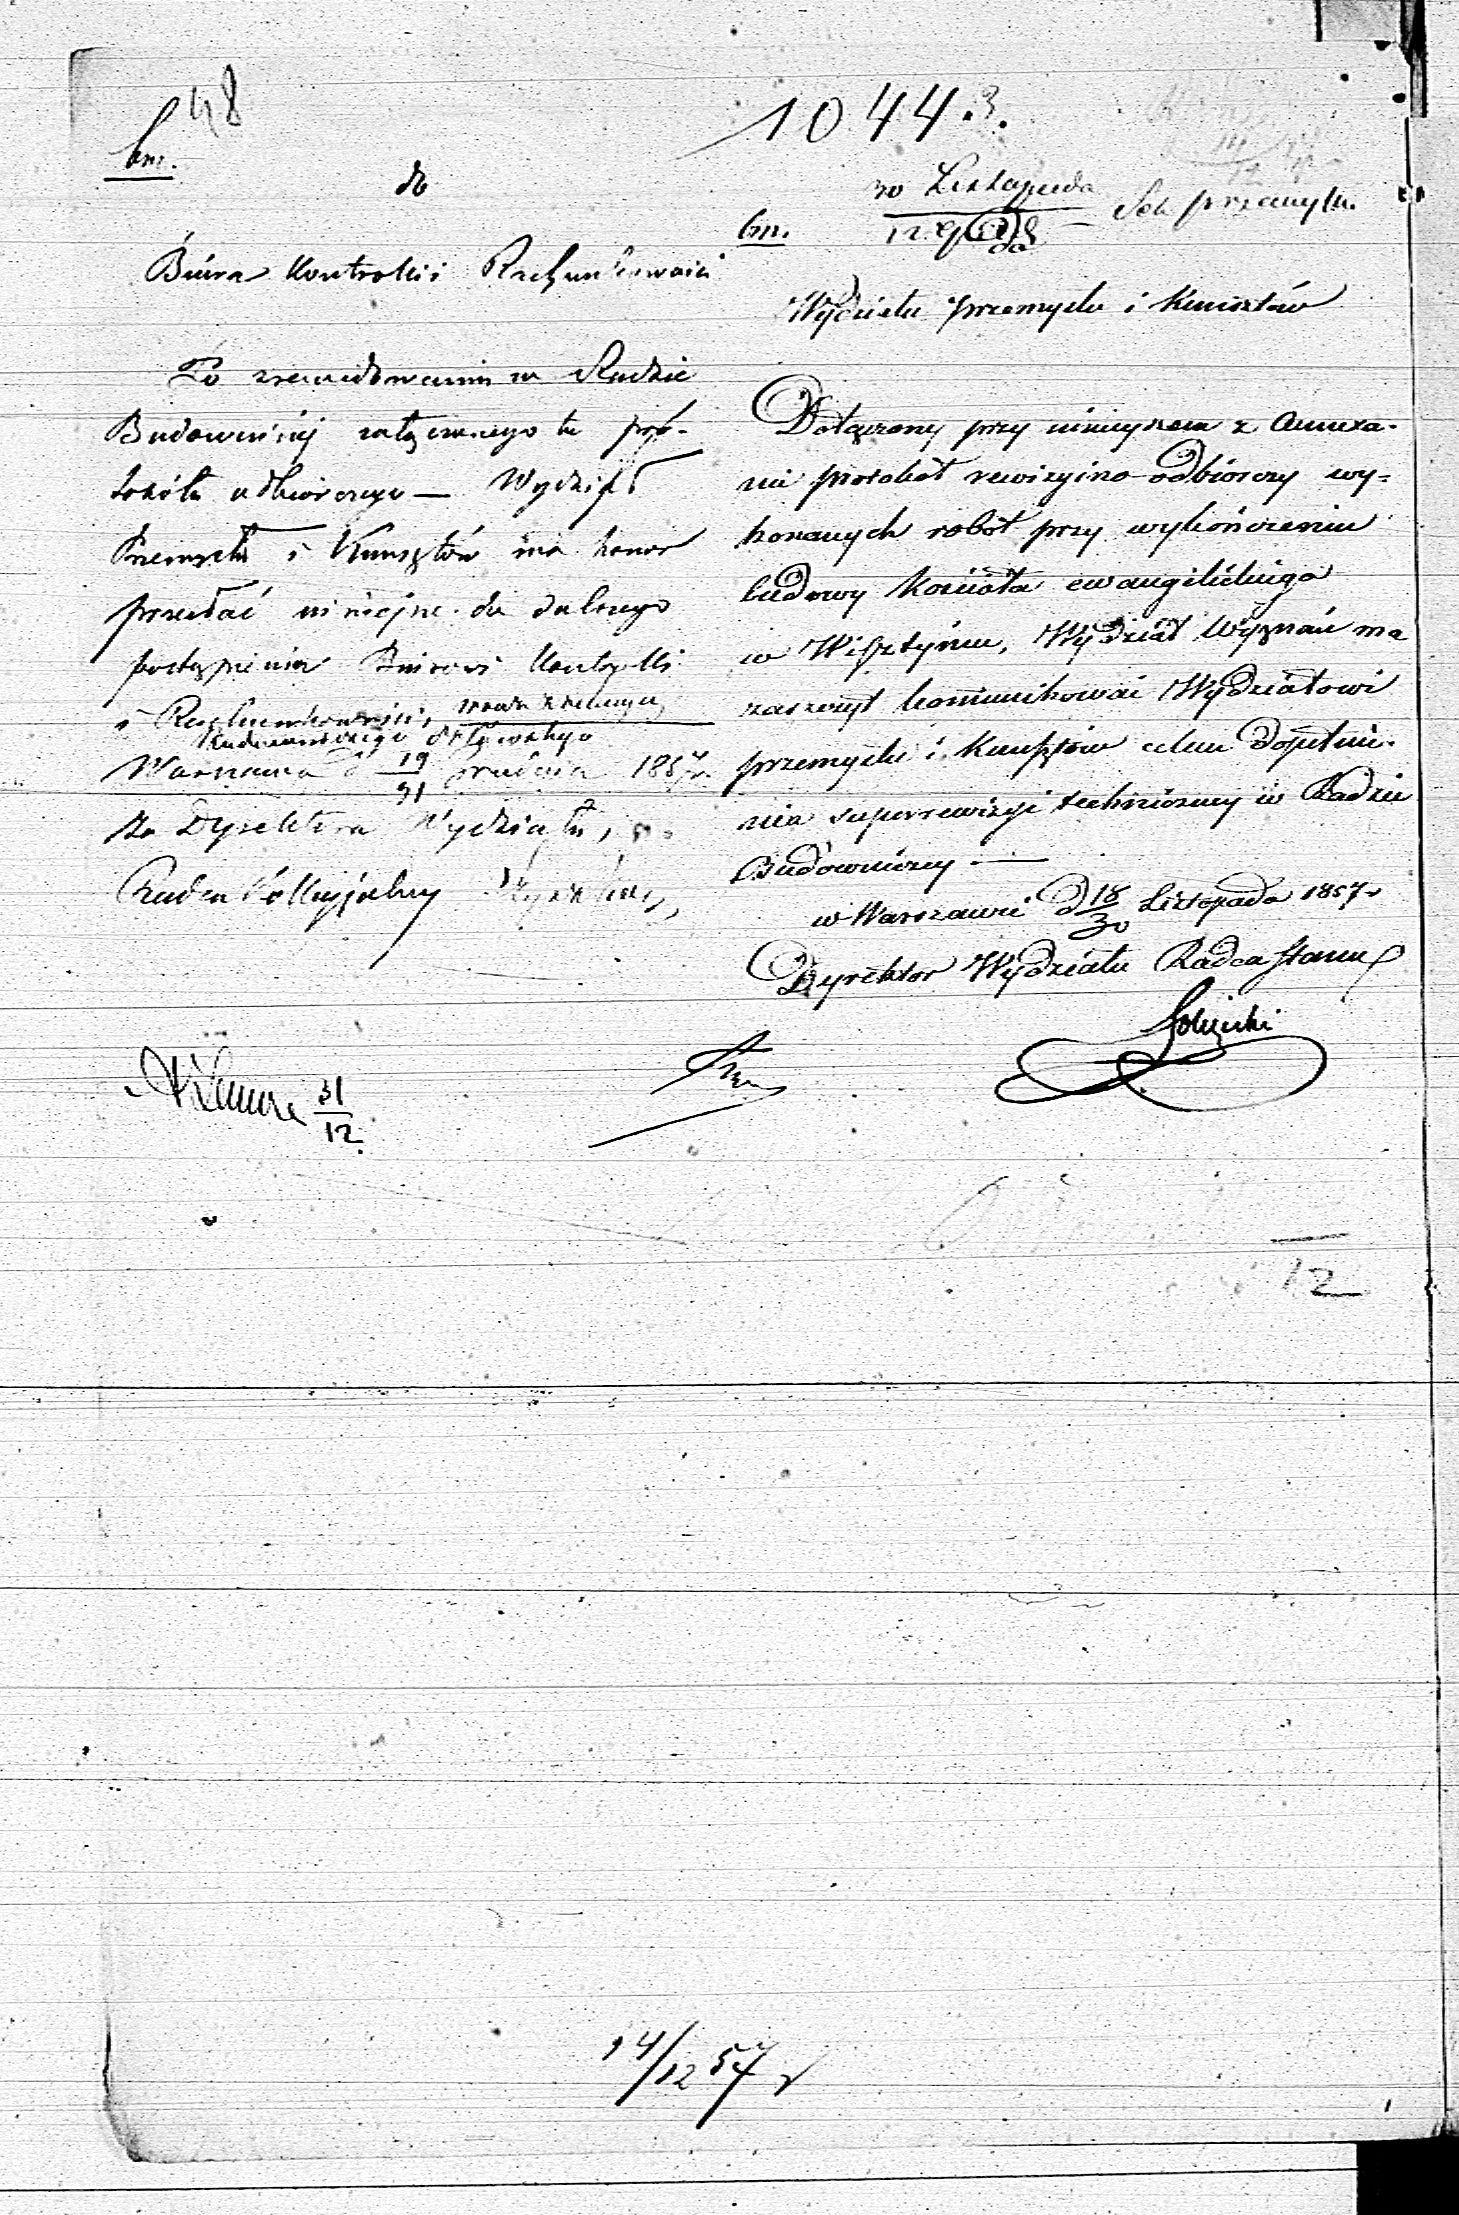 48
1044.3.
bm.
do
30 Listopada
12
Sek przemysłu.
Biura Kontrolli i Rachunkowości
bm.
Wydziału przemysłu i Kunsztów
Po zrewidowaniu w Radzie
Budowniczej załączonego tu pro-
tokółu odbiorczego — Wydział
Przemysłu i Kunsztów ma honor
przesłać niniejsze do dalszego
postąpienia Biurowi Kontrolli
i Rachunkowości,
Warszawa d 19/31 Grudnia 1857 r.
Za Dyrektora Wydziału,
Radca Kollegjalny
Dołączony przy niniejszem z Annexa-
mi protokół rewizyjno-odbiorczy wy-
konanych robót przy wykończeniu
budowy Kościoła ewangelickiego
w Wisztyńcu, Wydział Wyznań ma
zaszczyt komunikować Wydziałowi
przemysłu i Kunsztów celem dopełnie-
nia superrewizyi technicznej w Radzie
Budowniczej —
w Warszawie d 18/30 Listopada 1857 r
Dyrektor Wydziału Radca Stanu
31/12
12
14/12 57 r